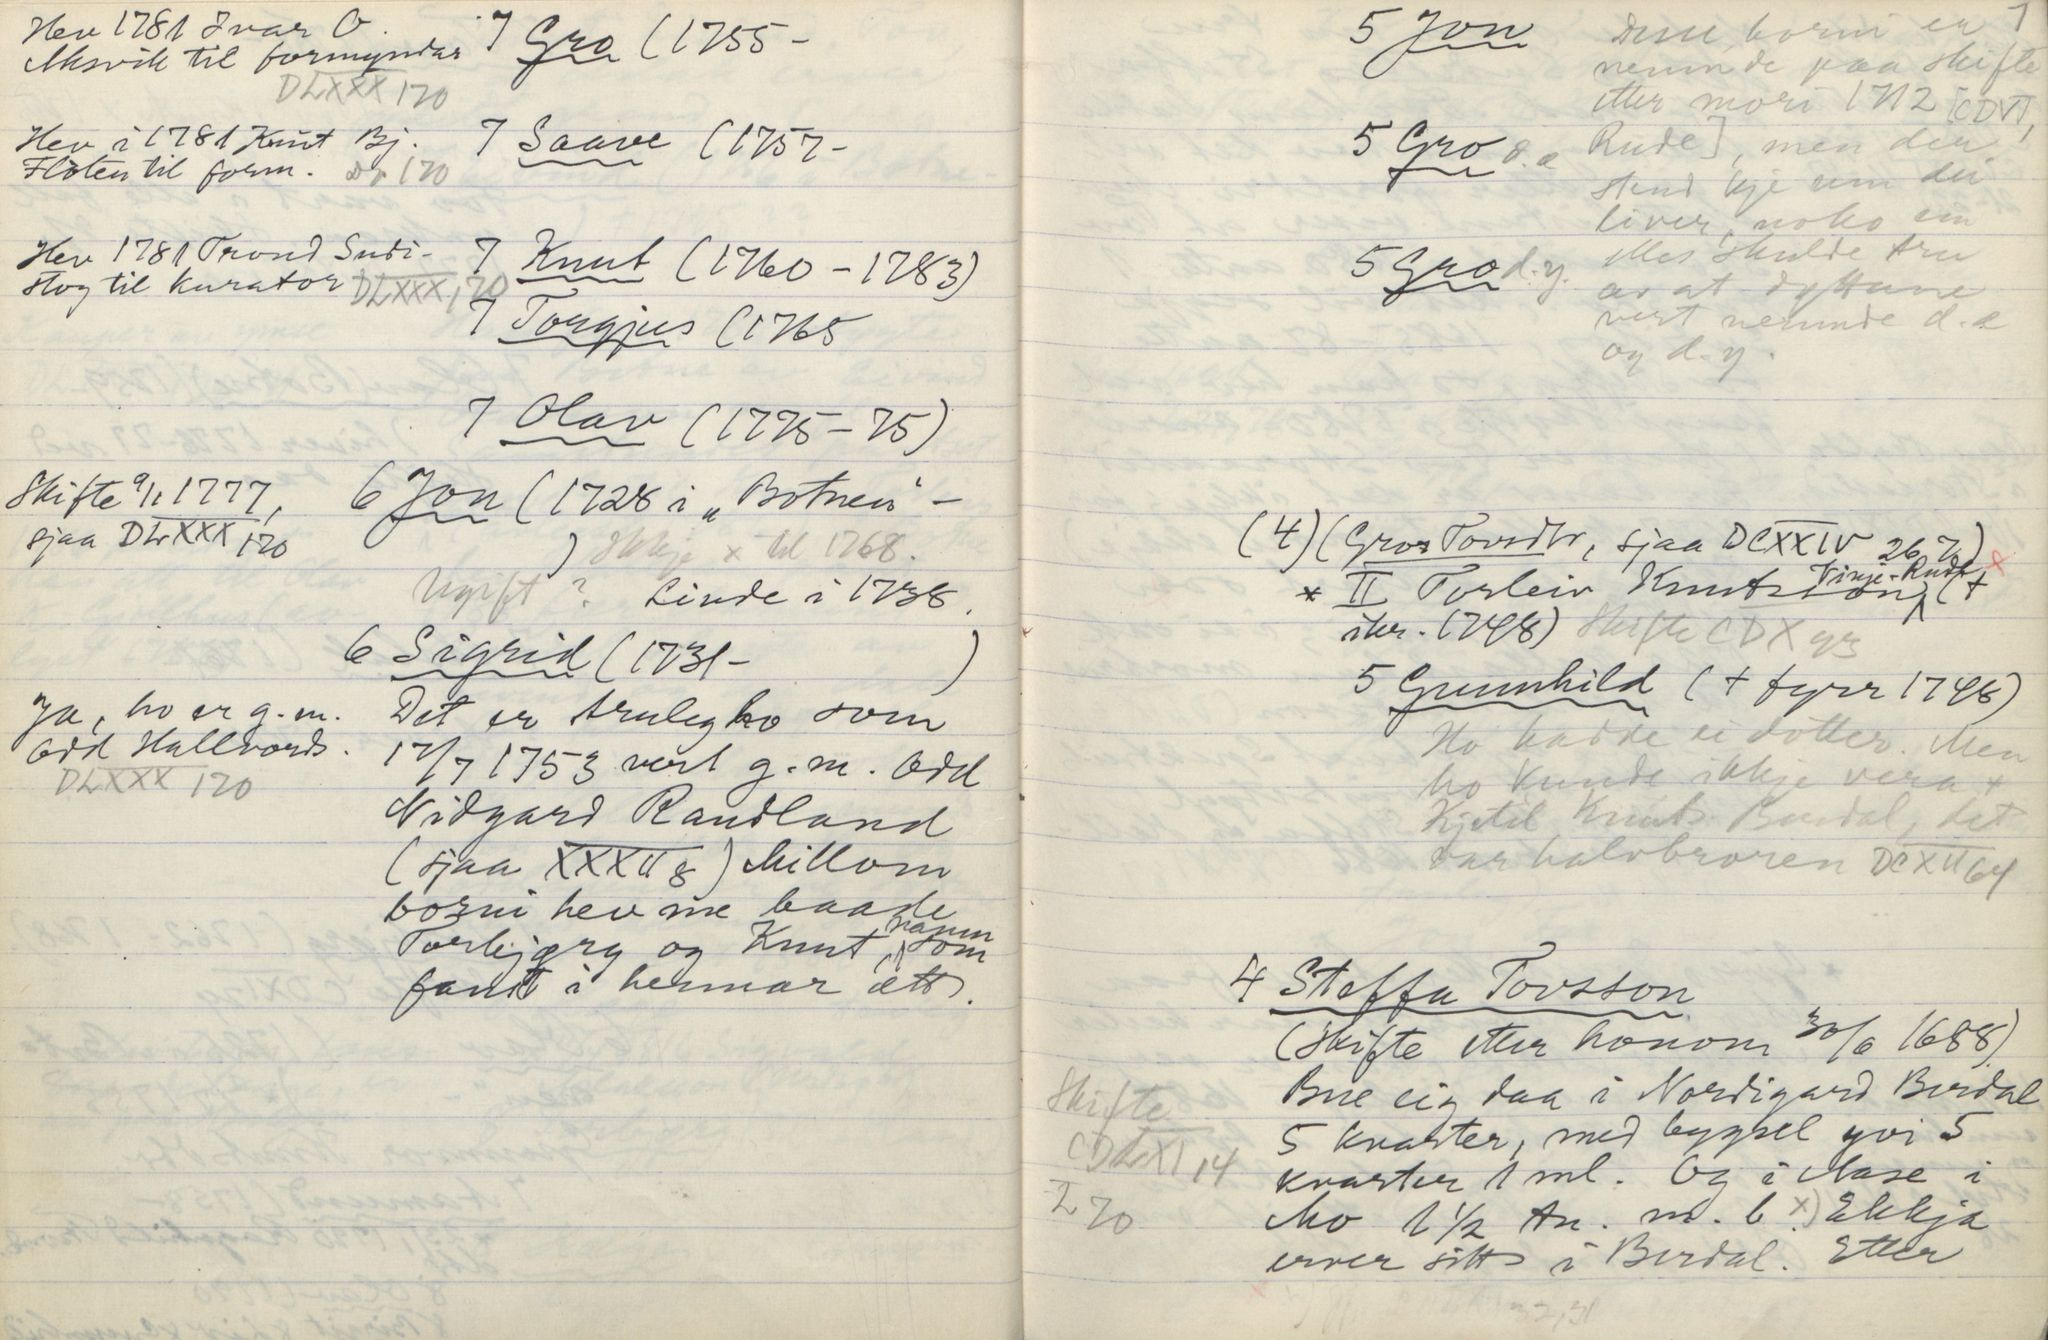 Hev 1781 Ivar O.
Aksvik til formyndar
DLXXX 170
7 Gro (1755-
Hev i 1781 Knut Bj.
Flòten til form. 170
7 Saave (1757-
Hev 1781 Trond Sudi-
stog til kurator DLXXX, 170
7 Knut (1760 - 1783)
7 Torgjus (1765
7 Olav (1775-75)
Skifte 1777,
sjaa DLXXX 170
6 Jon (1728 i „Botnen“ -
) Ikkje x til 1768.
Ugift? Livde i 1738.
6 Sigrid (1731- )
Ja, ho er g.m.
Odd Hallvords.
DLXXX 170
Det er truleg ho som
17/7 1753 vert g.m. Odd
Nidgard Randland
(sjaa XXXII 8) Millom
borni hev me baade
Torbjørg og Knut, namn som
fanst i hennar ætt.
7
5 Jon
5 Gro d.e
5 Gro d.y.
Desse borni er
nemnde paa skifte
etter mori 1712 [CDVI,
Rude], men der
stend kje um dei
liver, noko ein
elles skulde tru
av at døttane
vert nemnde d.e
og d.y.
(4) (Gro Tovsdtr, sjaa DCXXIV 26,7) x
x II Torleiv Knutsson Vinje-Rude (+
ikr. 1748) Skifte CDX 93
5 Gunnhild (+ fyrr 1748)
Ho hadde ei dotter. Men
ho kunde ikkje vera x
Kjetil Knuts. Burdal, det
var halvbroren DCXII 64
4 Steffa Tovsson
(Skifte etter honom 30/6 1688)
Bue eig daa i Nordigard Burdal
5 kvarter, med bygsel yvi 5
kvarter 1 ml. Og i Aase i
Mo 1 1/2 tn. m. b. x) Ekkja
erver sitt i Burdal. Etter
Skifte
CDLXI 14
I 70